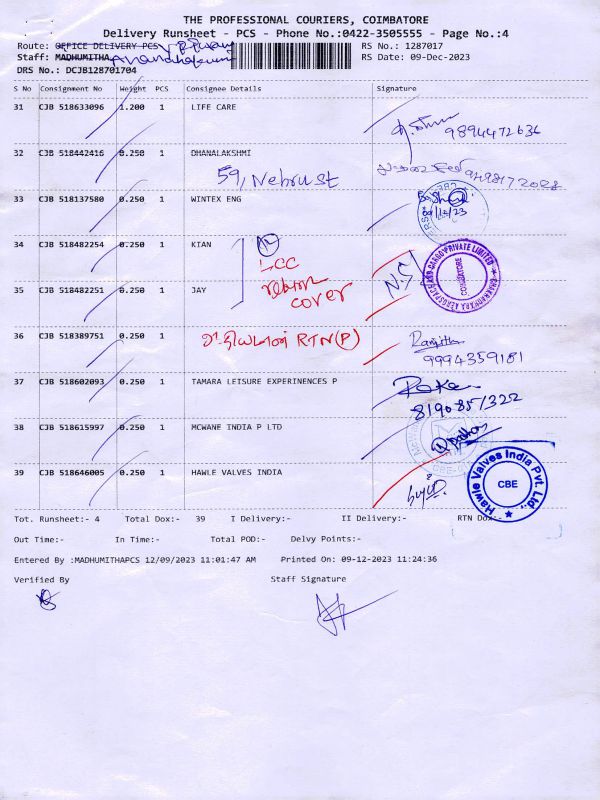 THE PROFESSIONAL COURIERS, COIMBATORE
Delivery Runsheet - PCS - Phone No.:0422-3505555 - Page No.:4
Route: OFFICE DELIVERY PCS
RS No.: 1287017
Staff: MADHUMITHA
RS Date: 09-Dec-2023
DRS No.: DCJB128701704
S No Consignment No Weight PCS Consignee Details Signature
31 CJB 518633096 1.200 1 LIFE CARE
9894472636
32 CJB 518442416 0.250 1 DHANALAKSHMI
59, Nebrust
33 CJB 518137580 0.250 1 WINTEX ENG
09/12/23
34 CJB 518482254 0.250 1 KIAN
LCC
return
cover
N.S
COIMBATORE
35 CJB 518482251 0.250 1 JAY
36 CJB 518389751 0.250 1
RTN (P)
Ranjitha
9994359181
37 CJB 518602093 0.250 1 TAMARA LEISURE EXPERINENCES P
819085/322
38 CJB 518615997 0.250 1 MCWANE INDIA P LTD
39 CJB 518646005 0.250 1 HAWLE VALVES INDIA
Hawle Valves India Pvt. Ltd.,
CBE
Tot. Runsheet:- 4 Total Dox:- 39 I Delivery:- II Delivery:- RTN Dox:-
Out Time:- In Time:- Total POD:- Delvy Points:-
Entered By :MADHUMITHAPCS 12/09/2023 11:01:47 AM Printed On: 09-12-2023 11:24:36
Verified By Staff Signature